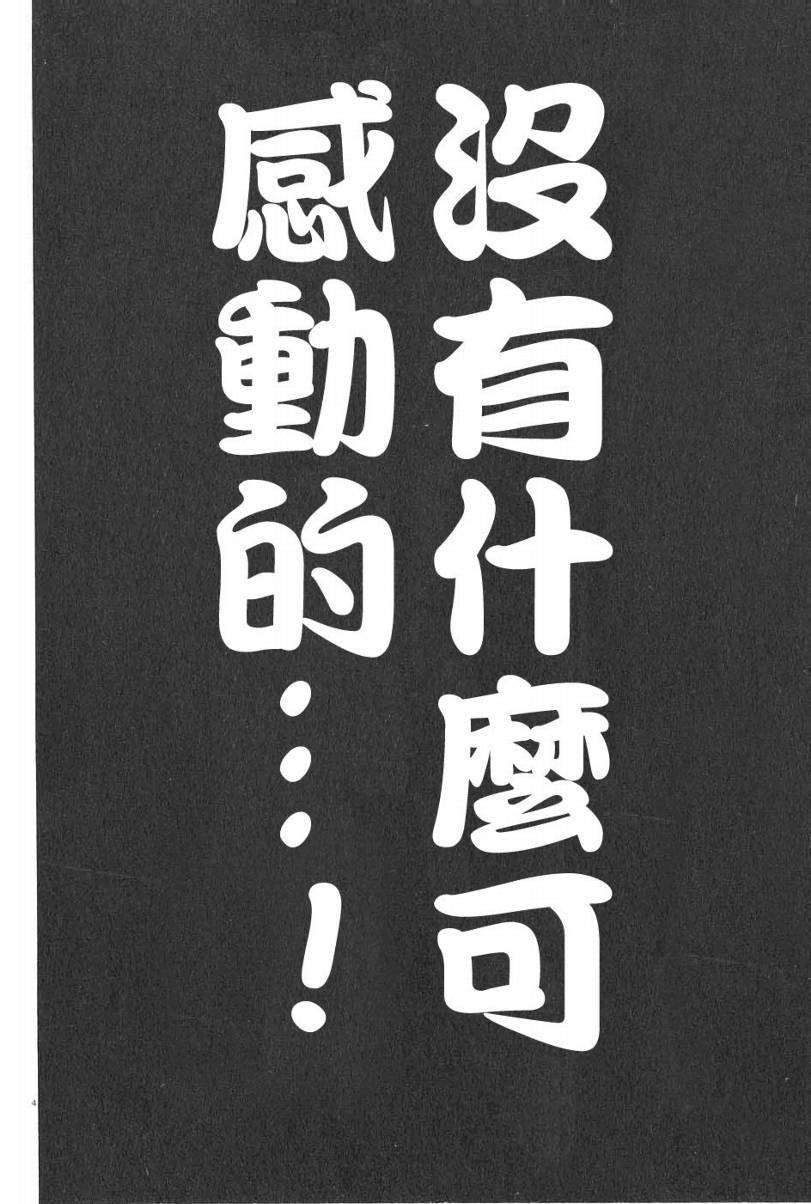 沒有什麼可
感動的…！
4